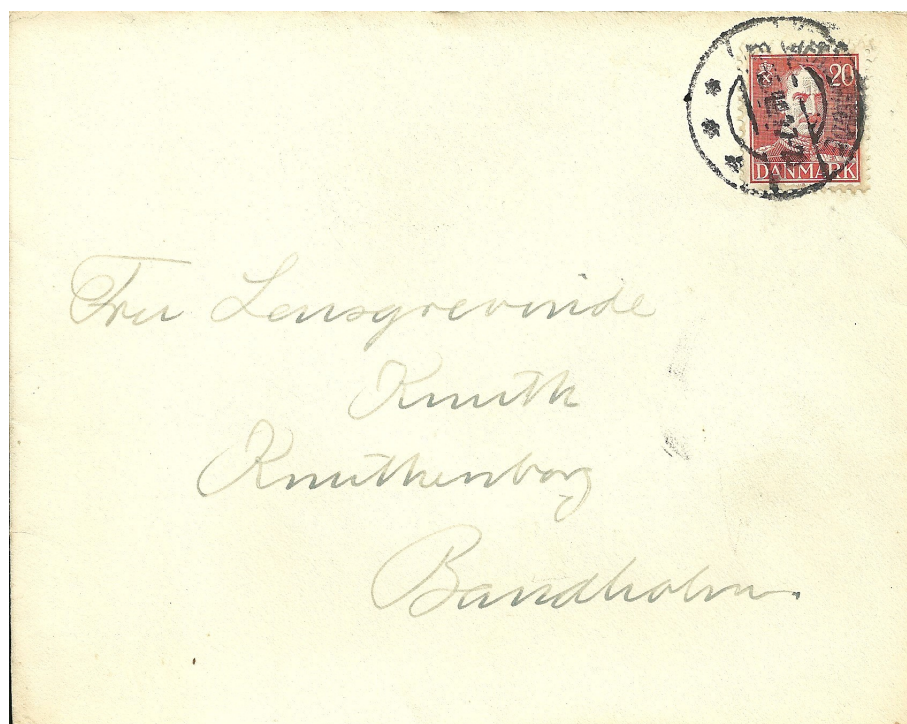 20
DANMARK
Fru Lensgrevinde
Knuth
Knuthenborg
Bandholm.